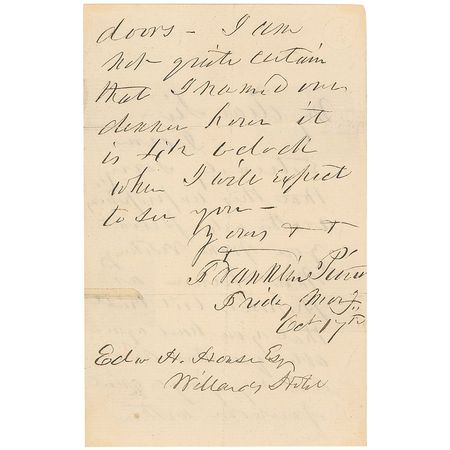 doors - I am
not quite certain
that I named our
dinner hour it
is 4½ o'clock
when I will expect
to see you -
Yours + +
Franklin Pierce
Friday Morg
Oct 17th
Edw H. House Esq
Willards Hotel